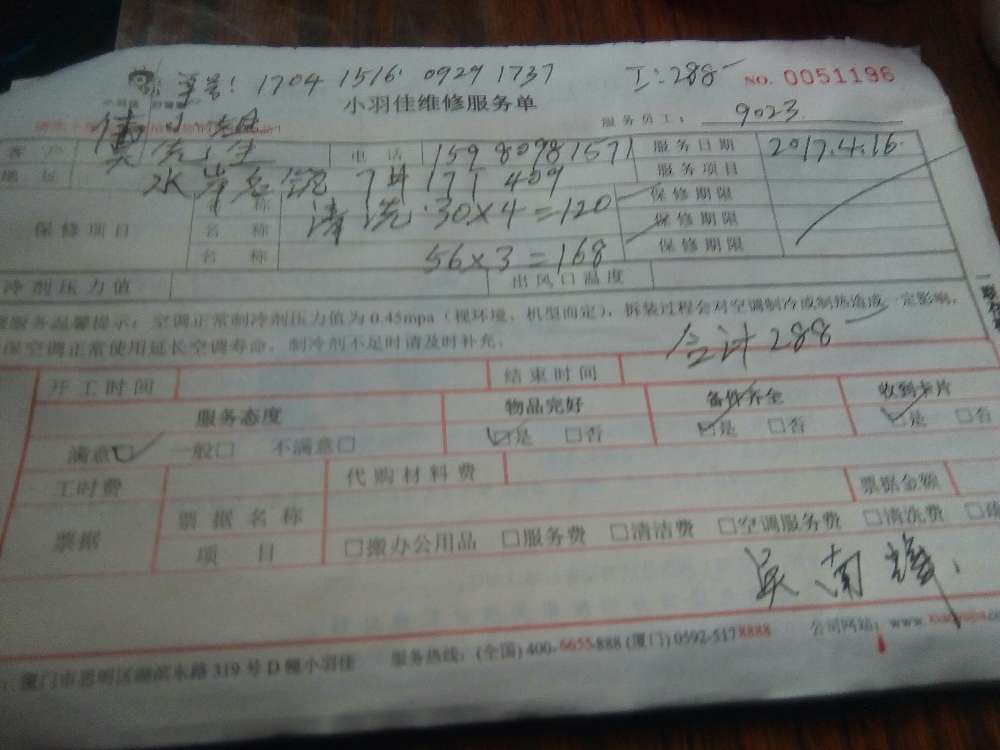 单号: 1704 1516 0929 1737 工:288 NO. 0051196
小羽佳维修服务单
服务员工: 9023
客户 电话 159 8098 1571 服务日期 2017.4.16
地址 水岸名筑 服务项目
保修项目 名称 清洗 30×4=120 保修期限
名称 保修期限
名称 56×3=168 保修期限
冷剂压力值 出风口温度
服务温馨提示:空调正常制冷剂压力值为0.45mpa(视环境、机型而定),拆装过程会对空调制冷或制热造成一定影响,
保空调正常使用延长空调寿命,制冷剂不足时请及时补充。
合计 288
开工时间 结束时间
服务态度 物品完好 备件齐全 收到卡片
满意☑ 一般□ 不满意□ ☑是 □否 ☑是 □否 ☑是 □否
工时费 代购材料费 票据金额
票据 票据名称
项目 □搬办公用品 □服务费 □清洁费 □空调服务费 □清洗费
吴南
厦门市思明区湖滨水路319号D幢小羽佳 服务热线:(全国)400-6655-888 (厦门)0592-5178888 公司网站:www.